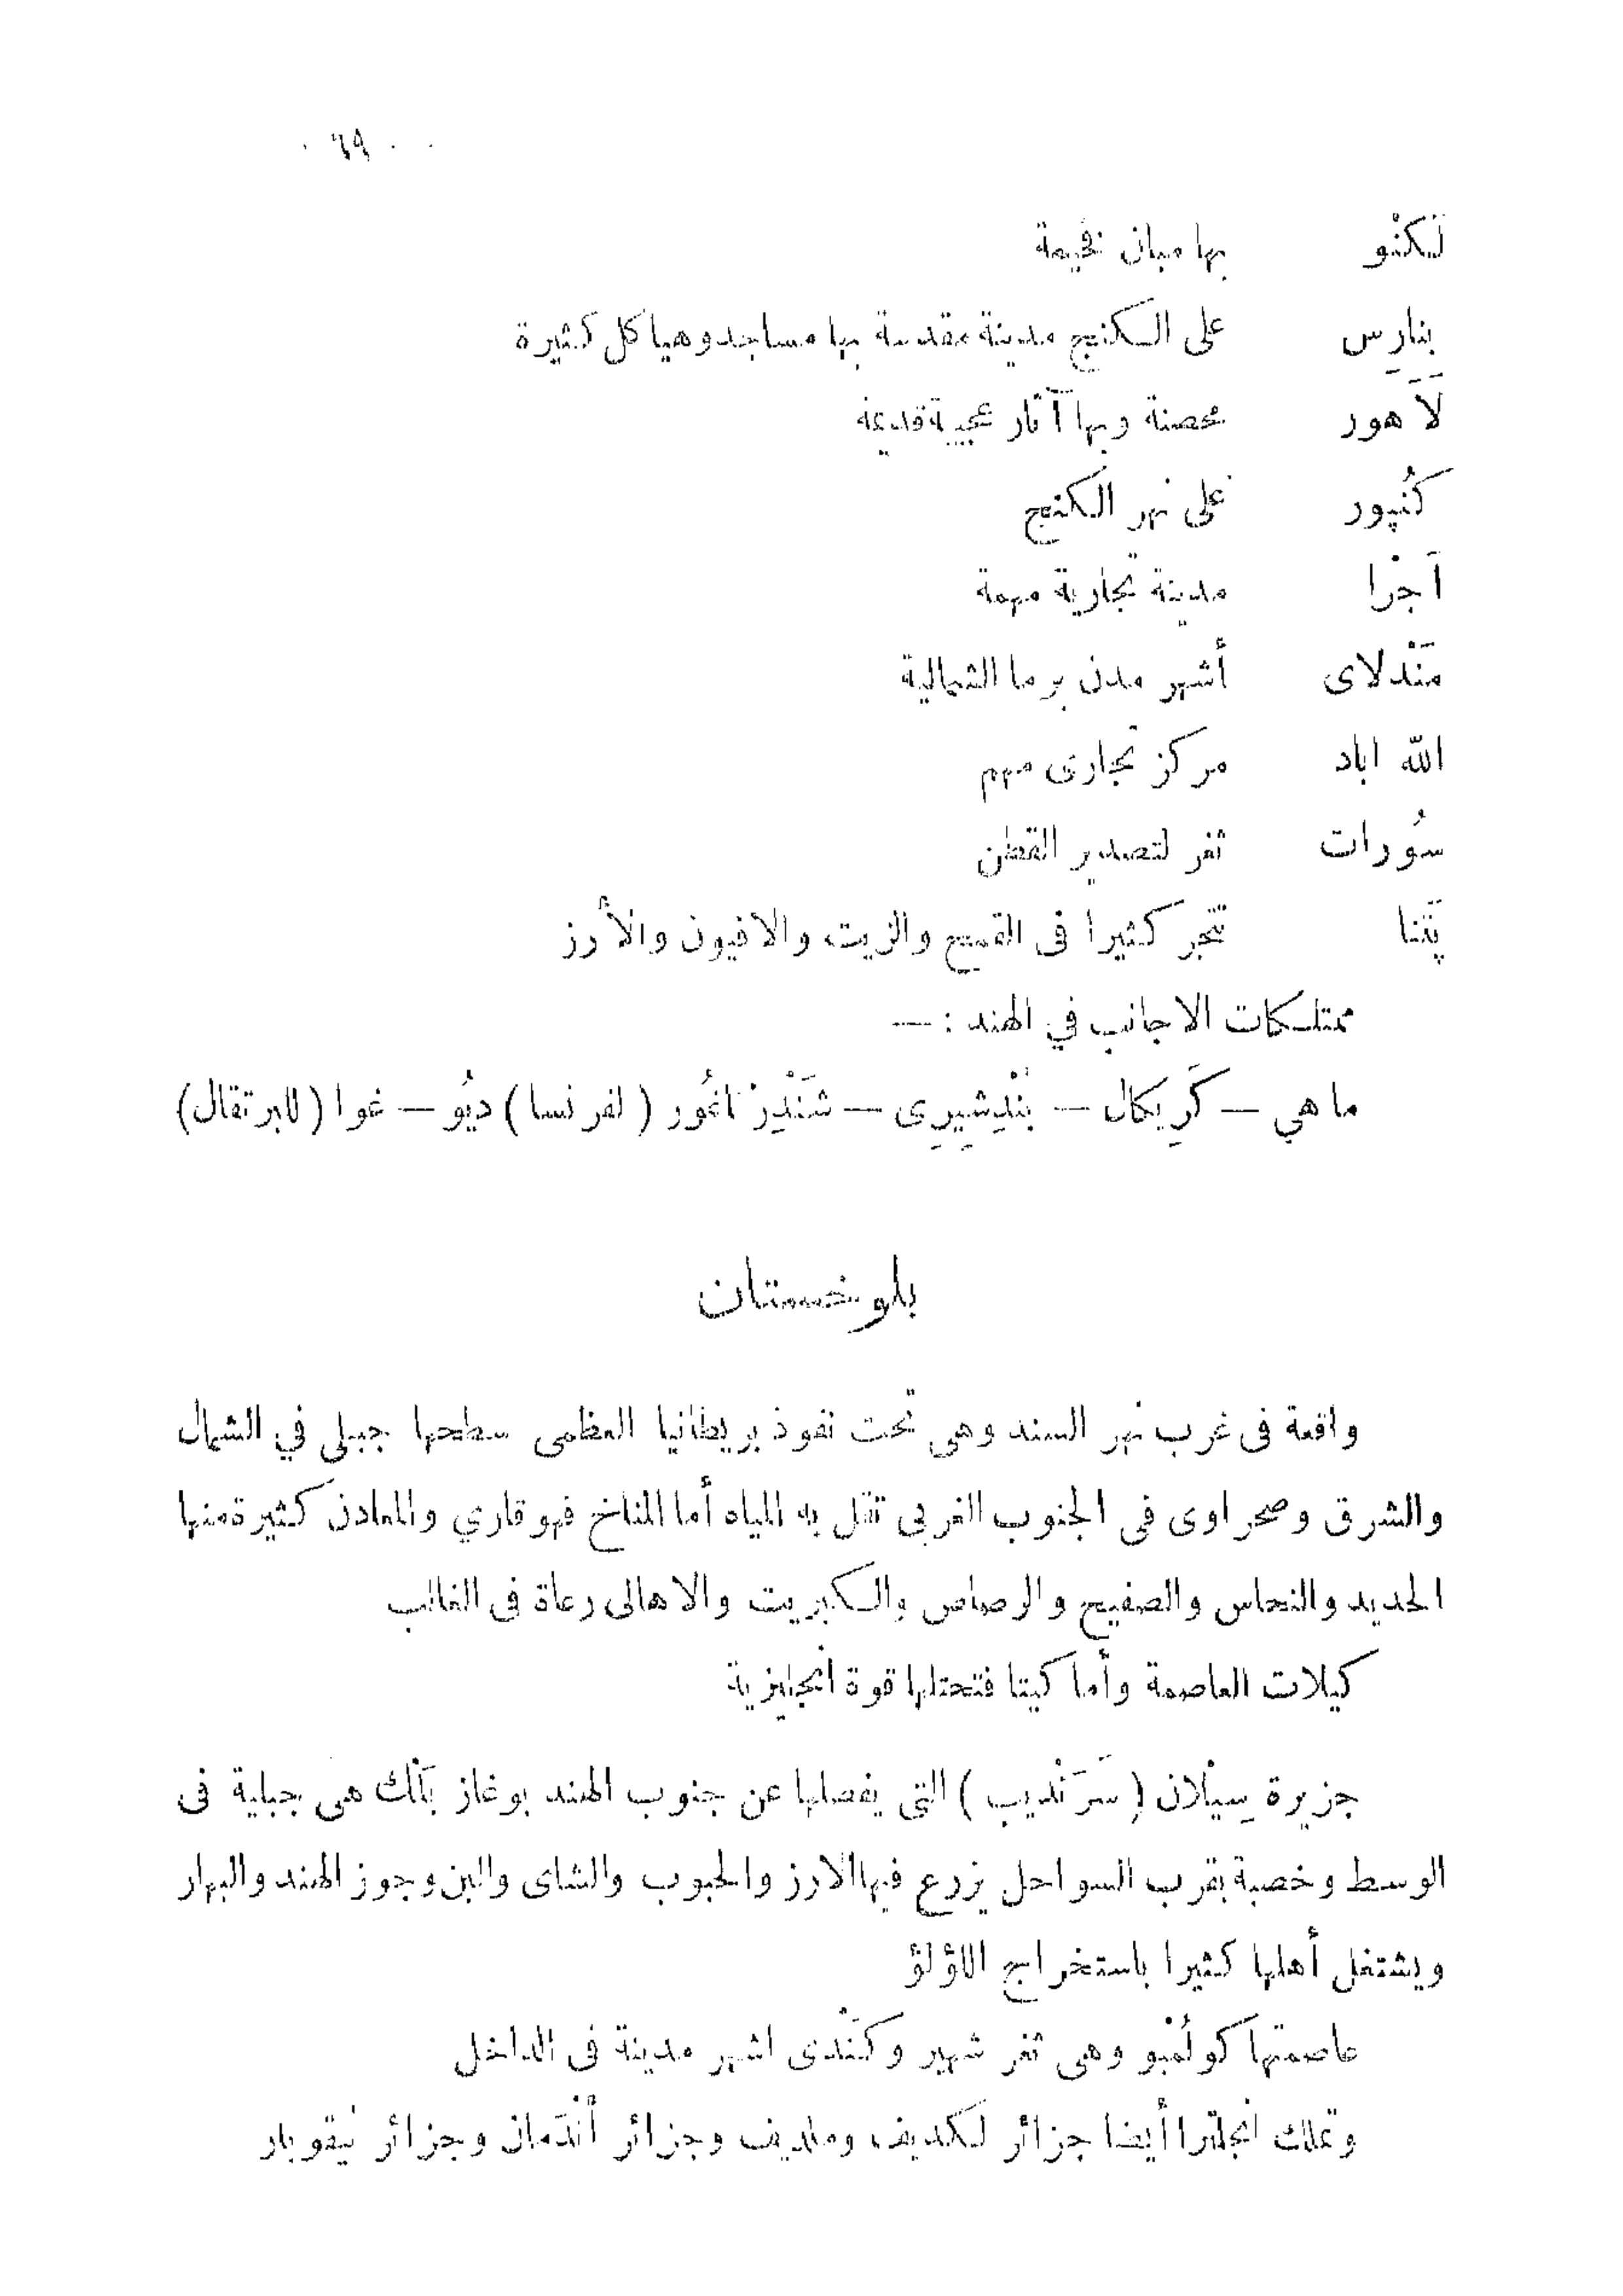 ٦٩
لَكْنَو بها مبان فخيمة
بِنارِس على الكنج مدينة مقدسة بها مساجد وهياكل كثيرة
لَاَهور محصنة وبها آثار عجيبة قديمة
كَنُپور على نهر الكنج
اَجْرا مدينة تجارية مهمة
مَنْدلاى أشهر مدن برما الشمالية
الله اباد مركز تجارى مهم
سُورات ثغر لتصدير القطن
پَتَنا تتجر كثيرا فى القمح والزيت والافيون والأرز
ممتلكات الاجانب في الهند : —
ماهي — كَرِيكال — بُنْدِشِيرِى — شَنْدِرْ ناغُور ( لفرنسا ) ديُو — غوا ( للبرتقال )
بلوخستان
واقعة فى غرب نهر السند وهى تحت نفوذ بريطانيا العظمى سطحها جبلى في الشمال
والشرق وصحراوى فى الجنوب الغربى تقل به المياه أما المناخ فهو قاري والمعادن كثيرة منها
الحديد والنحاس والصفيح والرصاص والكبريت والاهالى رعاة فى الغالب
كيلات العاصمة وأما كيتا فتحتلها قوة انجليزية
جزيرة سِيْلان ( سَرَنْديب ) التى يفصلها عن جنوب الهند بوغاز بَلْك هى جبلية فى
الوسط وخصبة بقرب السواحل يزرع فيها الارز والحبوب والشاى والبن وجوز الهند والبهار
ويشتغل أهلها كثيرا باستخراج اللؤلؤ
عاصمتها كولُمْبو وهى ثغر شهير وكَنْدى اشهر مدينة فى الداخل
وتملك انجلترا أيضا جزائر لكديف وملديف وجزائر أَنْدَمان وجزائر نيقوبار